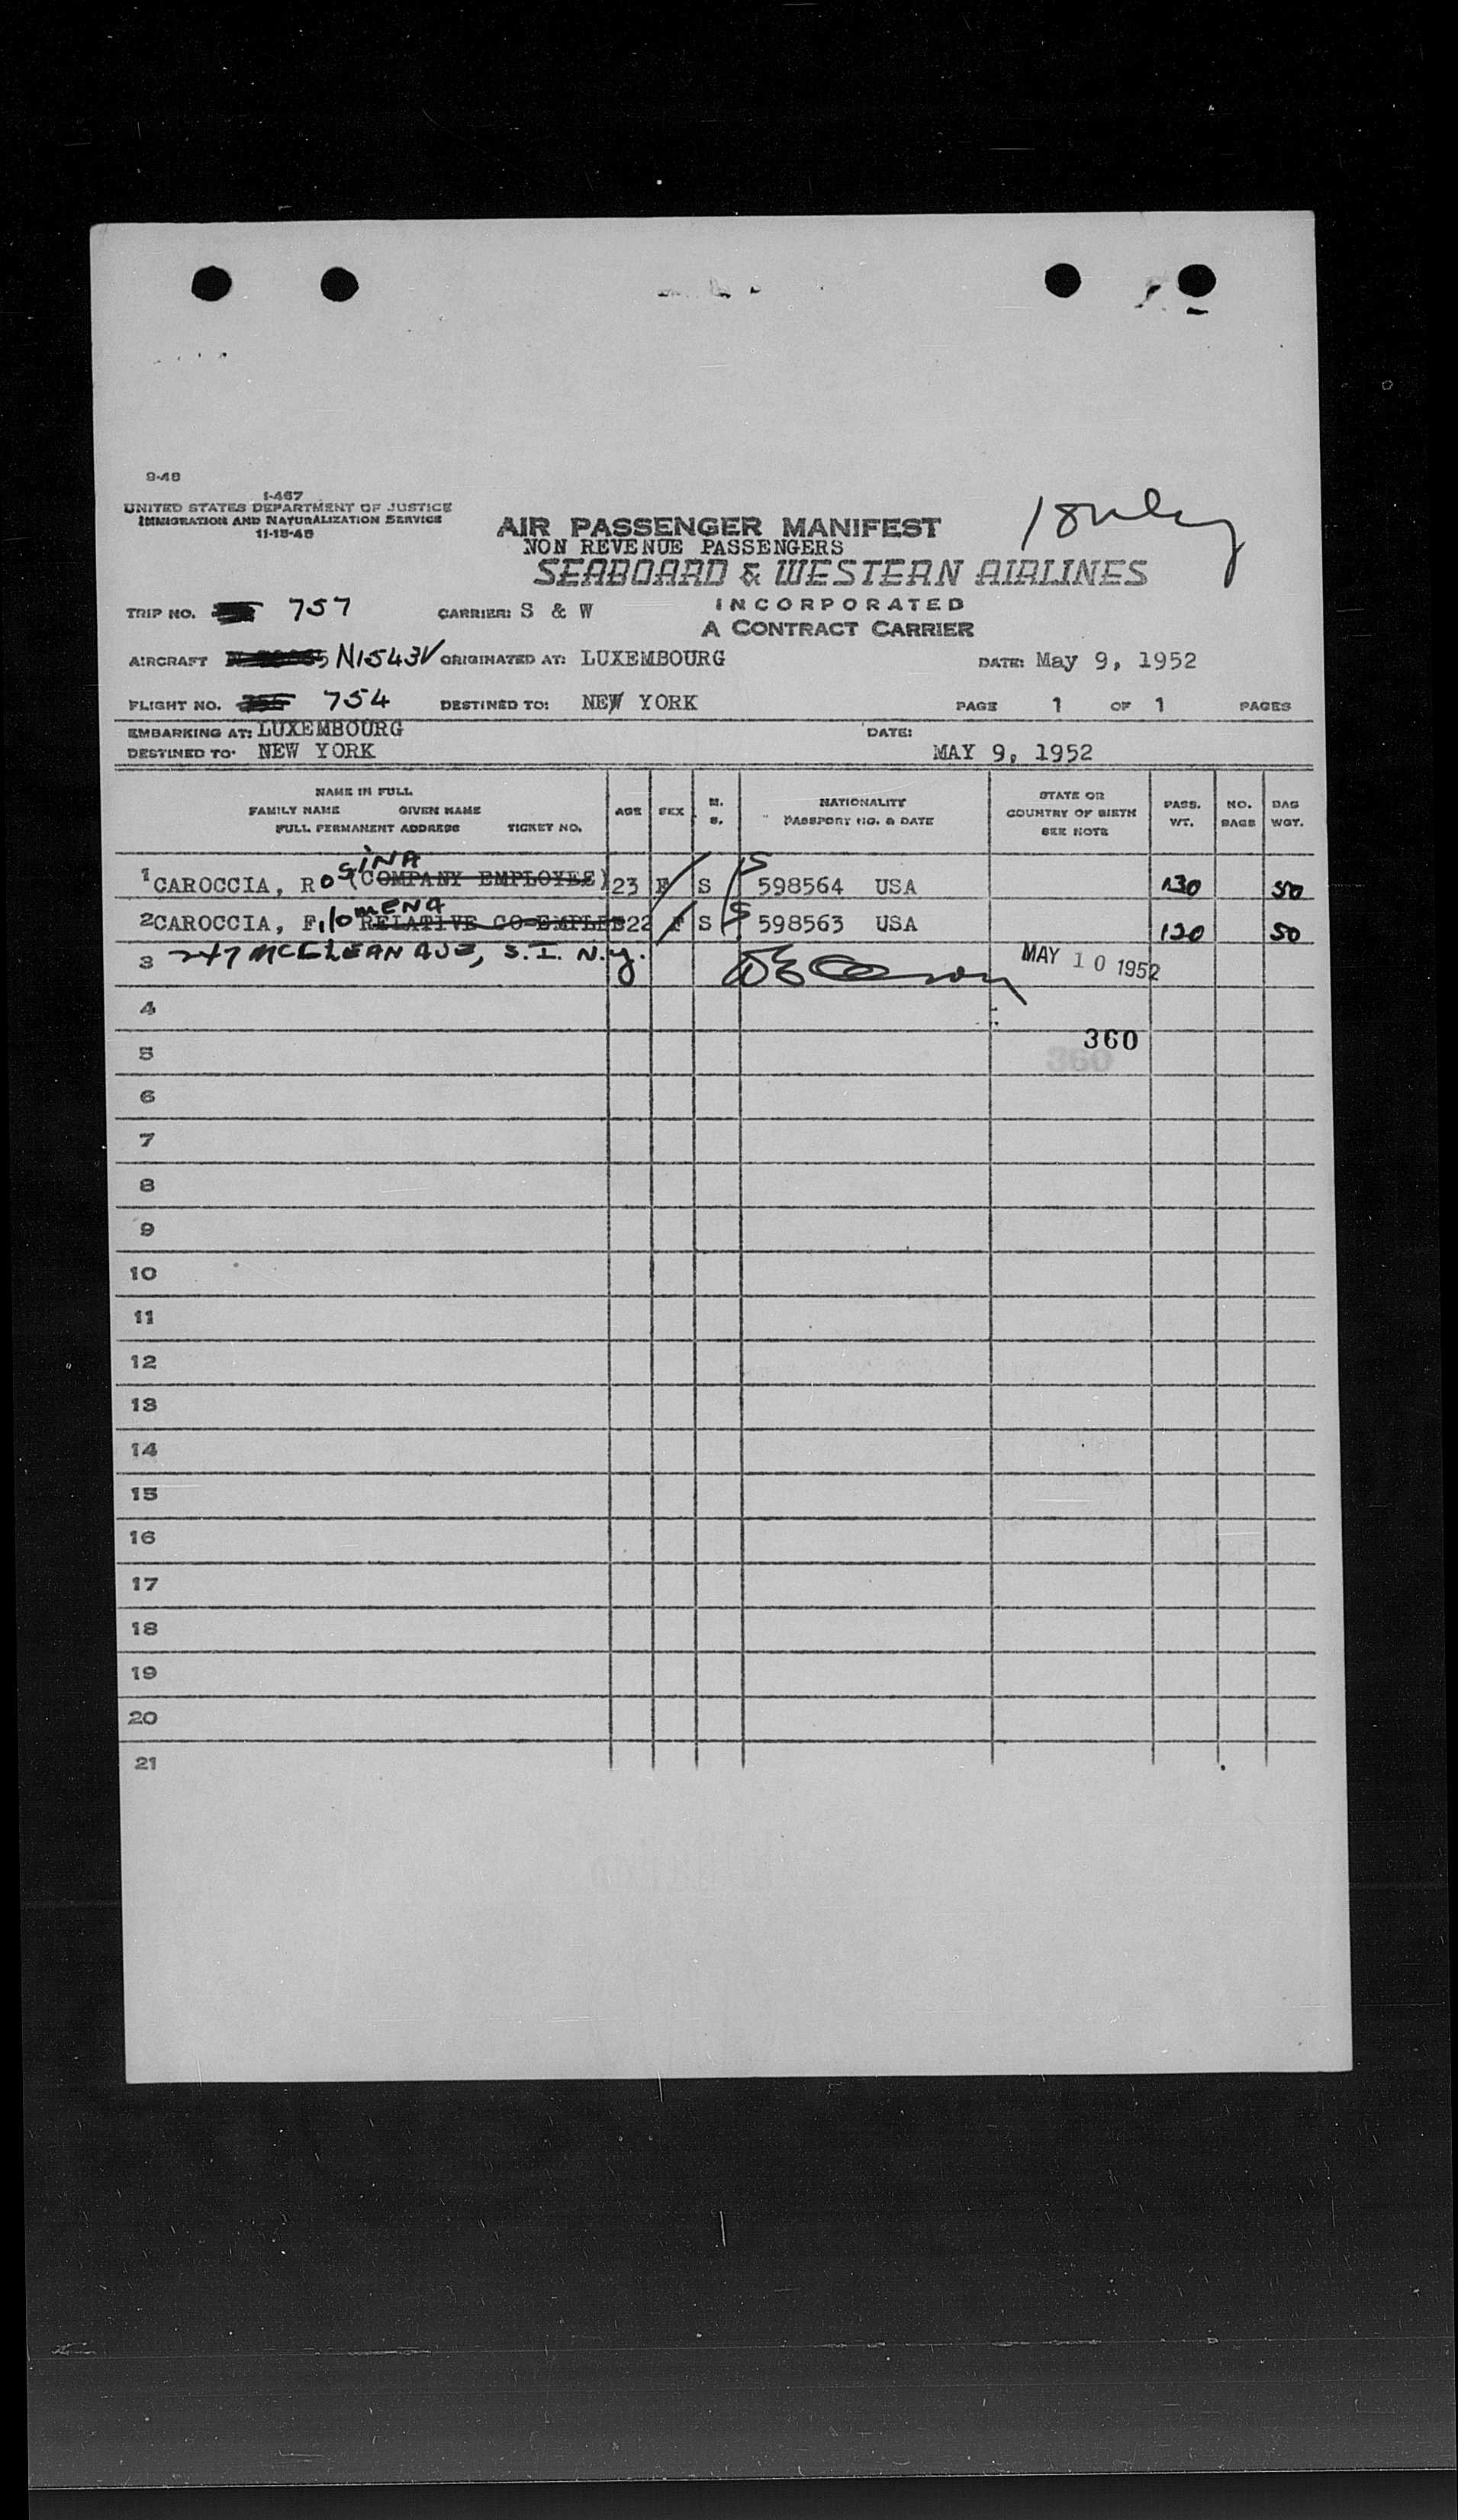 9-48
I-467
UNITED STATES DEPARTMENT OF JUSTICE
IMMIGRATION AND NATURALIZATION SERVICE
11-15-45
AIR PASSENGER MANIFEST
NON REVENUE PASSENGERS
SEABOARD & WESTERN AIRLINES
INCORPORATED
A CONTRACT CARRIER
TRIP NO. 757 CARRIER: S & W
AIRCRAFT N1543V ORIGINATED AT: LUXEMBOURG DATE: May 9, 1952
FLIGHT NO. 754 DESTINED TO: NEW YORK PAGE 1 OF 1 PAGES
EMBARKING AT: LUXEMBOURG DATE:
DESTINED TO: NEW YORK MAY 9, 1952
NAME IN FULL
FAMILY NAME GIVEN NAME
FULL PERMANENT ADDRESS TICKET NO.
AGE SEX M. S.
NATIONALITY
PASSPORT NO. & DATE
STATE OR
COUNTRY OF BIRTH
SEE NOTE
PASS. WT. NO. BAGS BAG WGT.
1 CAROCCIA, ROSINA (COMPANY EMPLOYEE) 23 F S 598564 USA 130 50
2 CAROCCIA, FilomENA RELATIVE CO-EMPLEE 22 F S 598563 USA 120 50
3 247 MCCLEAN AVE, S.I. N.Y. MAY 10 1952
4
360
5
6
7
8
9
10
11
12
13
14
15
16
17
18
19
20
21